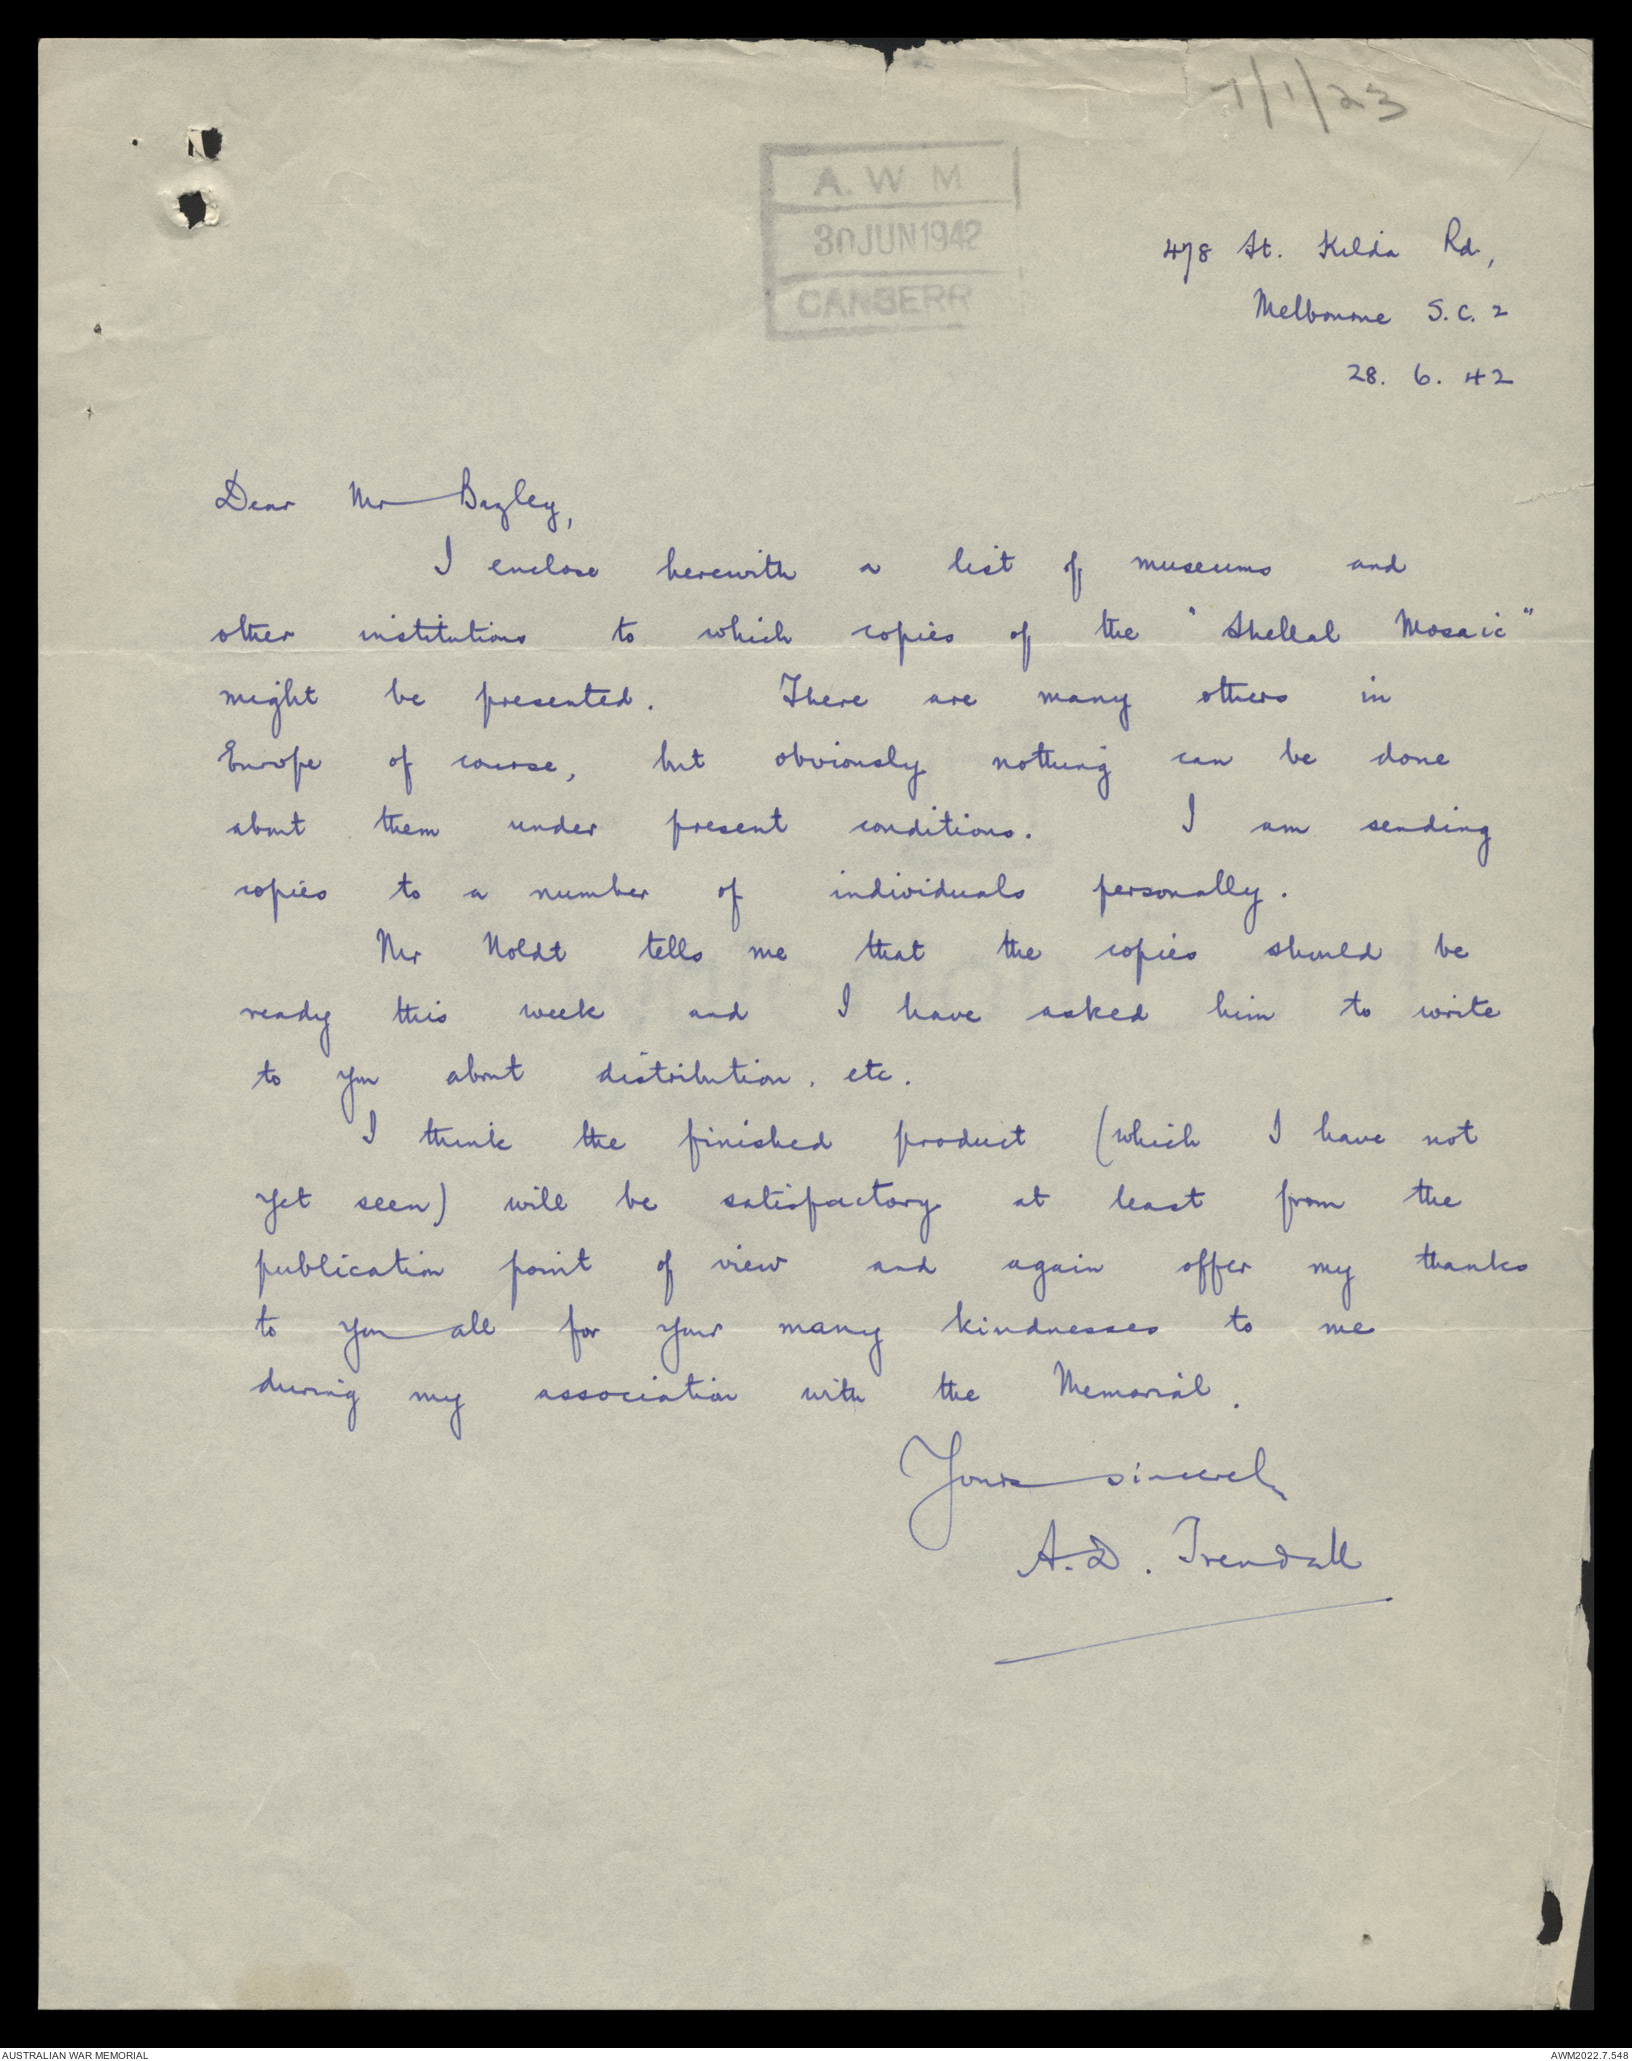 7/1/23
A. W M
30 JUN 1942
CANBERR
478 St. Kilda Rd,
Melbourne S.C. 2
28. 6. 42
Dear Mr Bazley,
I enclose herewith a list of museums and
other institutions to which copies of the "Shellal Mosaic"
might be presented. There are many others in
Europe of course, but obviously nothing can be done
about them under present conditions. I am sending
copies to a number of individuals personally.
Mr Noldt tells me that the copies should be
ready this week and I have asked him to write
to you about distribution, etc.
I think the finished product (which I have not
yet seen) will be satisfactory at least from the
publication point of view and again offer my thanks
to you all for your many kindnesses to me
during my association with the Memorial.
Yours sincerely
A.D. Trendall
AUSTRALIAN WAR MEMORIAL
AWM2022.7.548